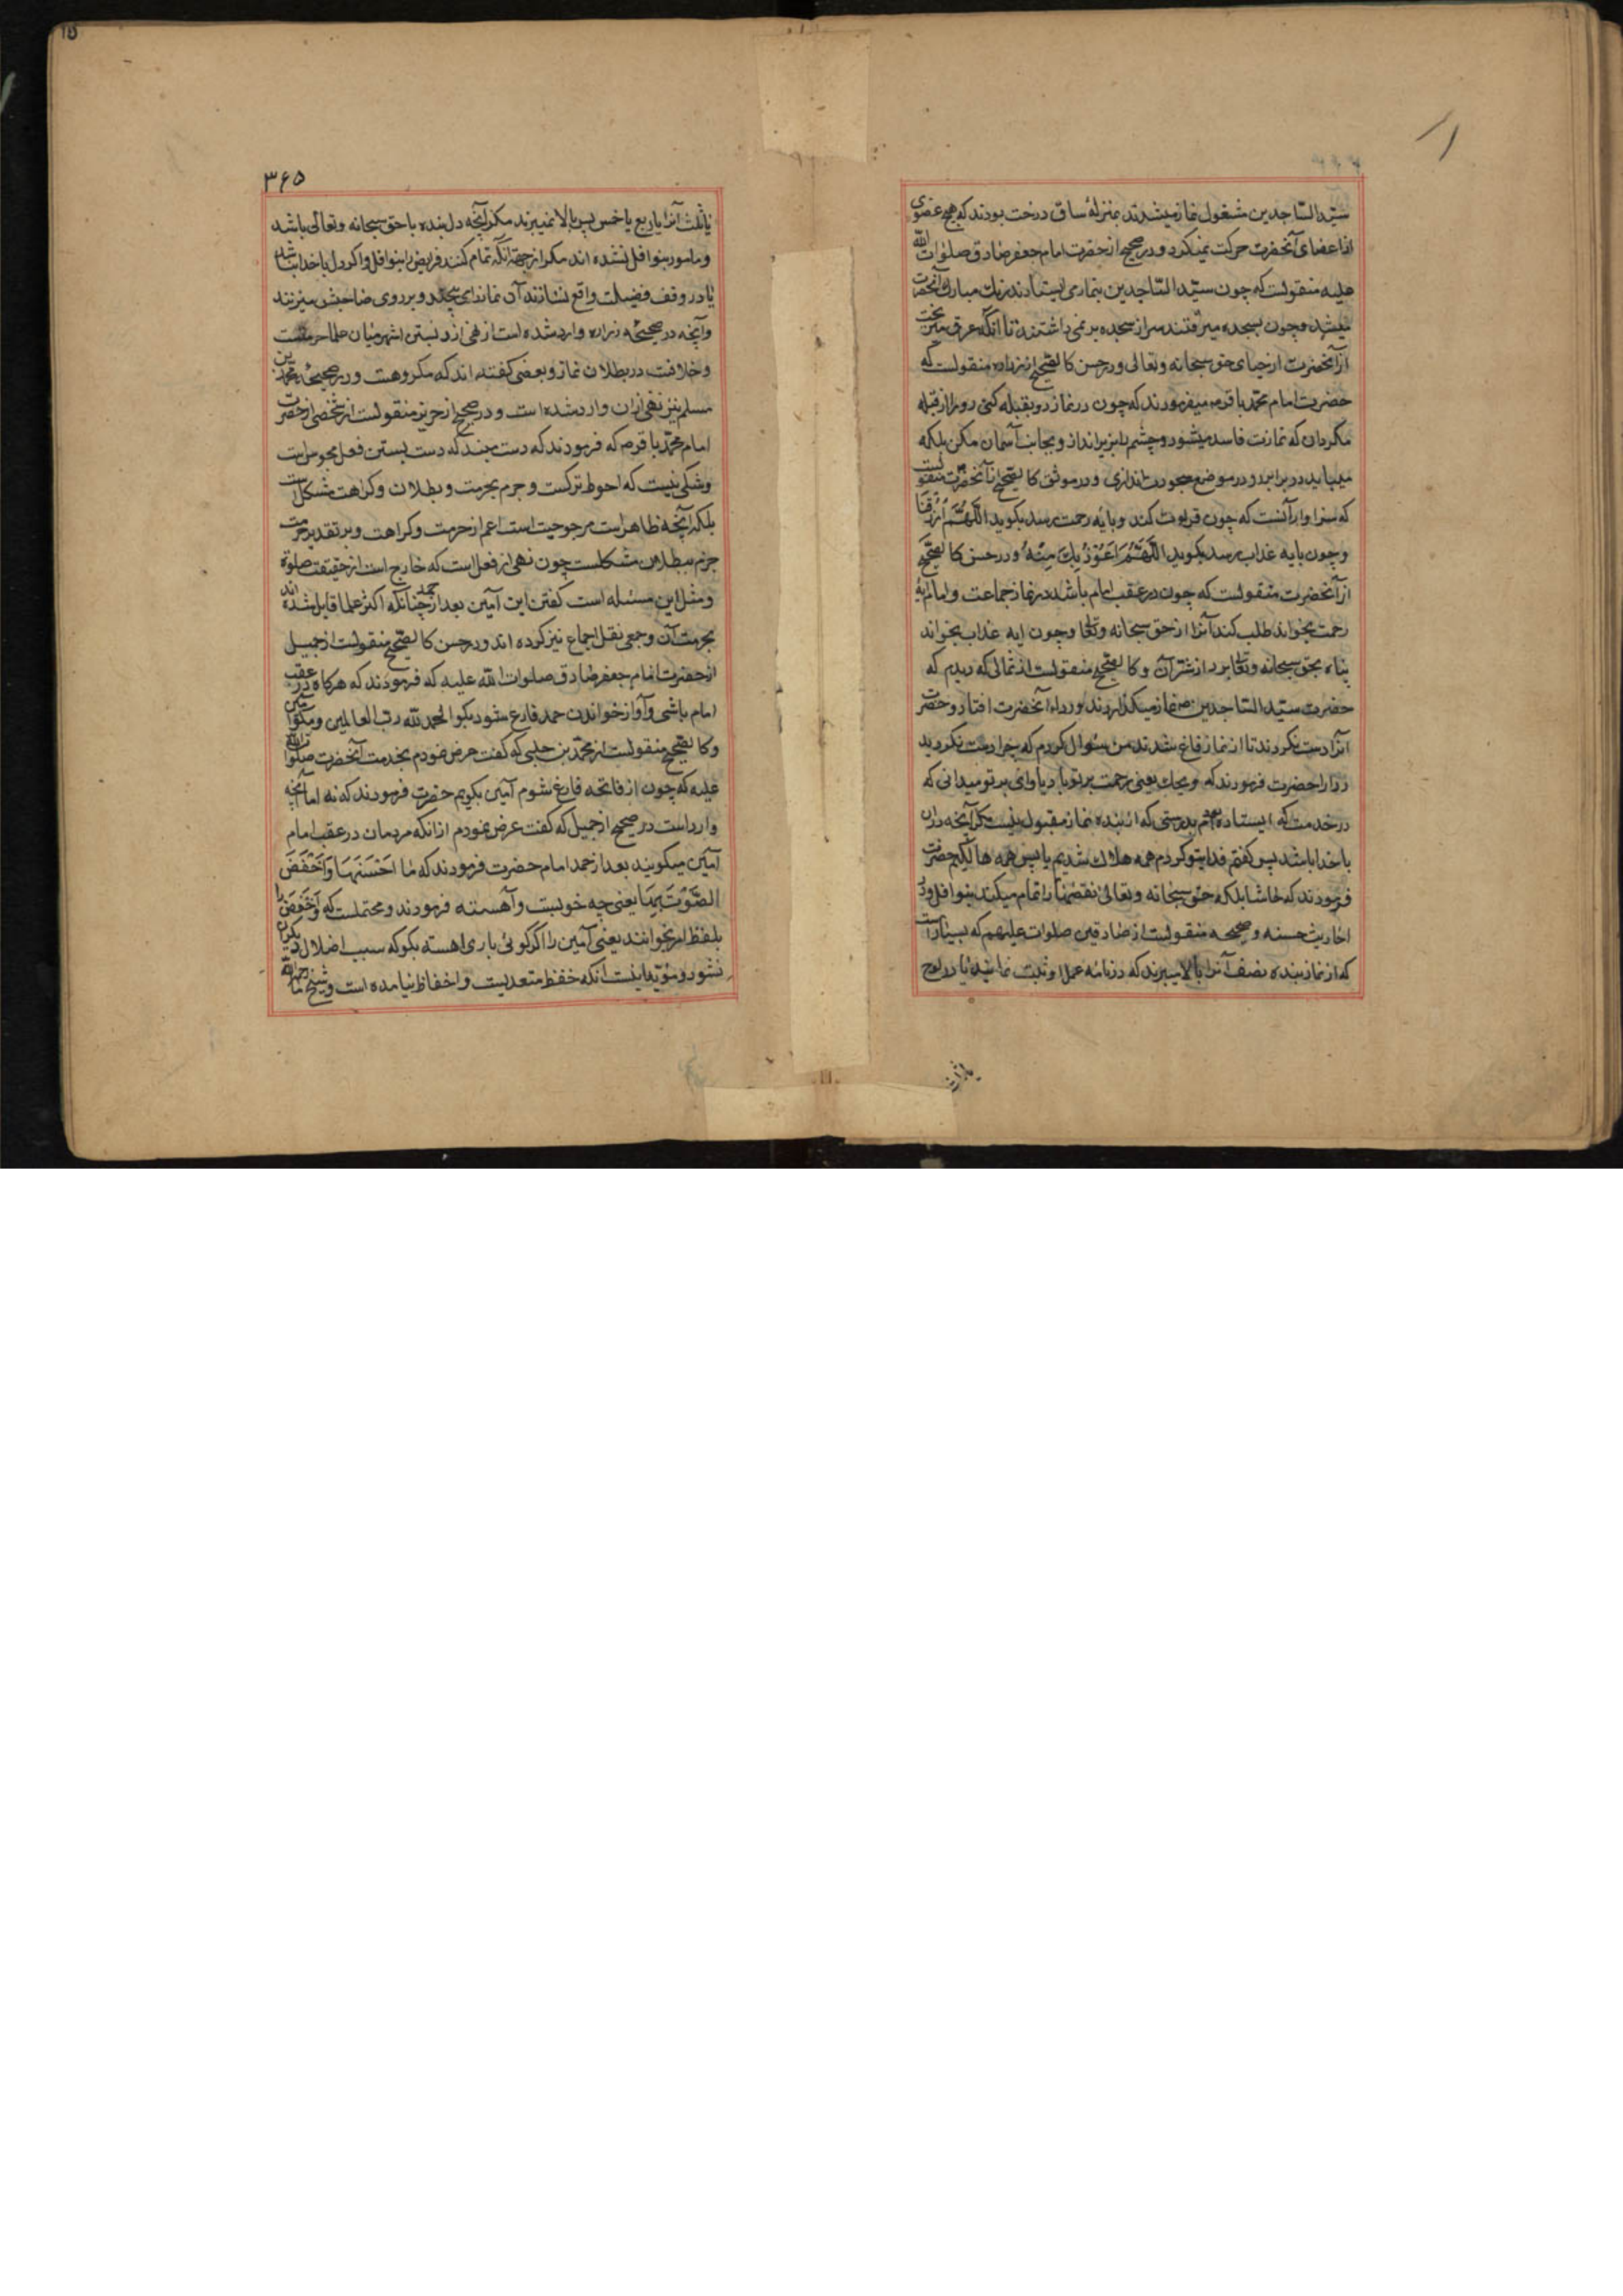 سید الساجدین مشغول نماز میشدند بمنزلهٔ ساق درخت بودند که هیچ عضوی
از اعضای آنحضرت حرکت نمیکرد و در صحیح از حضرت امام جعفر صادق صلوات الله
علیه منقولست که چون سید الساجدین بنماز می ایستادند رنك مبارك آنحضرت
میشد و چون بسجده میرفتند سر از سجده بر نمی داشتند تا انکه عرق میریخت
از آنحضرت از حیای حق سبحانه و تعالی و در حسن کالصحیح از زراره منقولست که
حضرت امام محمد باقر میفرمودند که چون در نماز رو بقبله کنی رو را از قبله
مکردان که نمازت فاسد میشود و چشم را بزیر انداز و بجانب آسمان مکن بلکه
میباید در برابر رو در موضع سجودت اندازی و در موثق کالصحیح از آنحضرت منقولست
که سزاوار آنست که چون قرائت کند و بآیه رحمت رسد بکوید اللهم ارزقنا
و چون بایه عذاب رسد بکوید اللهم اعوذ بك منه و در حسن کالصحیح
از آنحضرت منقولست که چون در عقب امام باشد در نماز جماعت و امام آیهٔ
رحمت بخواند طلب کند آنرا از حق سبحانه و تعالی و چون ایه عذاب بخواند
پناه بحق سبحانه و تعالی برد از شر آن و کالصحیح منقولست از ثمالی که دیدم که
حضرت سید الساجدین نماز میکذاردند و رداء آنحضرت افتاد و حضرت
آنرا درست نکردند تا از نماز فارغ شدند من سئوال کردم که چرا درست نکردید
ردا را حضرت فرمودند که ویحك یعنی رحمت بر تو باد یا وای بر تو میدانی که
در خدمت که ایستاده بودم بدرستی که از بنده نماز مقبول نیست مکر آنچه دران
با خدا باشد پس کفتم فدایتو کردم همه هلاك شدیم یا پس همه هالکیم حضرت
فرمودند که حاشا بلکه حق سبحانه و تعالی نقصها را تمام میکند بنوافل و در
احادیث حسنه و صحیحه منقولست از صادقین صلوات علیهم که بسیار است
که از نماز بنده نصف آنرا بالا میبرند که در نامه عمل او ثبت نمایند یا در لوح
یا ثلث
۳۶۵
یا ثلث آنرا یا ربع یا خمس پس بالا نمیبرند مکر آنچه دل بنده با حق سبحانه و تعالی باشد
و مامور بنوافل نشده اند مکر از جهة آنکه تمام کنند فریض را بنوافل و اکر دل با خدا نباشد
یا در وقف فضیلت واقع نسازند آن نماز را می پیچند و بر روی صاحبش میزنند
و آنچه در صحیحهٔ زراره وارد شده است از نهی از دست بستن اشهر میان علما حرمتست
و خلافست در بطلان نماز و بعضی کفته اند که مکروهست و در صحیحهٔ محمد بن
مسلم نیز نهی ازان وارد شده است و در صحیح از حریز منقولست از شخصی از حضرت
امام محمد باقر که فرمودند که دست مبند که دست بستن فعل مجوس است
و شکی نیست که احوط ترکست و جزم بحرمت و بطلان و کراهت مشکل است
بلکه آنچه ظاهر است مرجوحیت است اعم از حرمت و کراهت و بر تقدیر حرمت
جزم ببطلان مشکلست چون نهی از فعل است که خارج است از حقیقت صلوة
و مثل این مسئله است کفتن این آمین بعد از حمد چنانکه اکثر علما قایل شده اند
بحرمت آن و جمعی نقل اجماع نیز کرده اند و در حسن کالصحیح منقولست از جمیل
از حضرت امام جعفر صادق صلوات الله علیه که فرمودند که هر کاه در عقب
امام باشی و آواز خواندن حمد فارغ شود بکو الحمد لله رب العالمین و مکو آمین
و کالصحیح منقولست از محمد بن حلبی که کفت عرض نمودم بخدمت آنحضرت صلوات الله
علیه که چون از فاتحه فارغ شوم آمین بکویم حضرت فرمودند که نه اما آنچه
وارد است در صحیح از جمیل که کفت عرض نمودم از انکه مردمان در عقب امام
آمین میکویند بعد از حمد امام حضرت فرمودند که ما احسنها و اخفض
الصوت بها یعنی چه خوبست و آهسته فرمودند و محتملست که و اخفض را
بلفظ امر بخوانند یعنی آمین را اکر کوئی باری اهسته بکو که سبب اضلال دیکران
نشود و مؤید اینست انکه خفظ متعدیست و اخفاظ نیامده است و شیخ ما رحمه الله